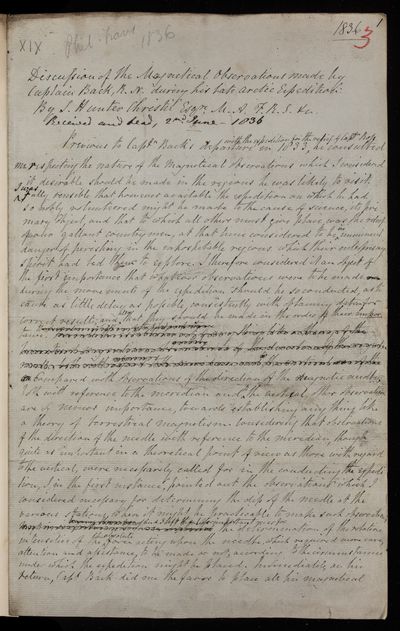 1836 1
3
XIX Phil Trans 1836
Discussion of the Magnetical Observations made by
Captain Back, R.N. during his late Arctic Expedition.
By S. Hunter Christie Esqre. M.A. F.R.S. &c.
Received and read, 2nd June - 1836
with the expedition for the relief of Captn Ross
Previous to Captn Back's departure in 1833, he consulted
me respecting the nature of the Magnetical Observations which I considered
it desirable should be made in the regions he was likely to visit.
I was fully sensible that however admirable the expedition on which he had
so nobly volunteered might be made to the cause of science, its pri-
mary object, and that to which all others must give place, was the relief
of our gallant countrymen, at that time considered to be in imminent
danger of perishing in the inhospitable regions which their enterprising
spirit had led them to explore. I therefore considered it an object of
the first importance that whatever observations were to be made
during the movements of the expedition should be so conducted, as to
cause as little delay as possible, consistently with obtaining
correct results, and that they should be made in the order of their impor-
tance.
compared with observations of the direction of the magnetic needle,
both with reference to the meridian and to the vertical, other observations
are of minor importance, towards establishing any thing like
a theory of terrestrial magnetism. Considering that observations
of the direction of the needle with reference to the meridian, though
quite as important in a theoretical point of view as those with regard
to the vertical, were necessarily called for in the conducting the expedi-
tion, I in the first instance, pointed out the observations which I
considered necessary for determining the dip of the needle at the
various stations, when it might be practicable to make such observations,
the determination of the relative
intensities of the forces acting upon the needle which required more care,
attention and assistance, to be made or not, according to the circumstances
under which the expedition might be placed. Immediately on his
return, Captn Back did me the favor to place all his magnetical